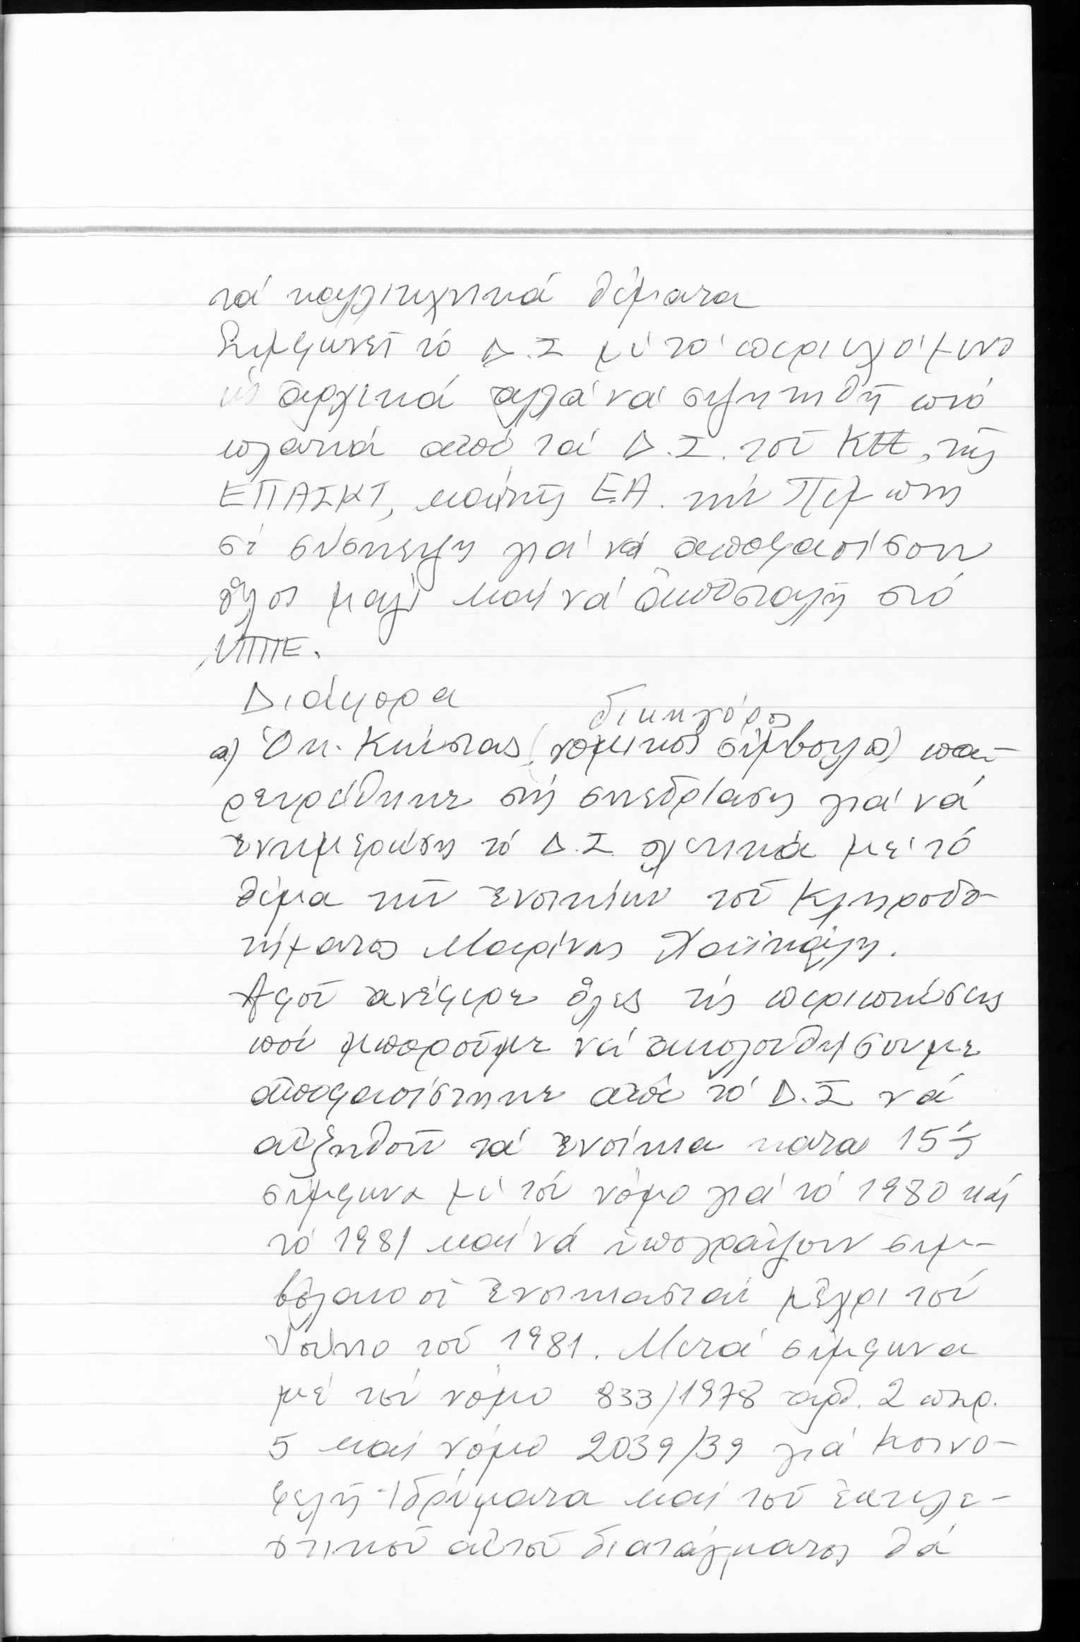 τά καλλιτεχνικά θέματα
Συμφωνεῖ τό Δ.Σ μέ τό περιεχόμενο
ὡς ἀρχικά ἀλλά νά συζητηθῆ πιό
πλατιά ἀπό τά Δ.Σ. τοῦ ΚΤΕ, τῆς
ΕΠΑΣΚΤ, καί τῆς Ε.Α. τήν Πέμπτη
σέ σύσκεψη γιά νά ἀποφασίσουν
ὅλοι μαζί καί νά ἀποσταλῆ στό
ΥΠΠΕ.
Διάφορα
δικηγόρος
α) Ὁ κ. Κιούσας (νομικός σύμβουλος) πα-
ρευρέθηκε στή συνεδρίαση γιά νά
ἐνημερώση τό Δ.Σ σχετικά μέ τό
θέμα τῶν ἐνοικίων τοῦ Κληροδο-
τήματος Μαρίνας
Ἀφοῦ ἀνέφερε ὅλες τίς περιπτώσεις
πού μποροῦμε νά ἀκολουθήσουμε
ἀποφασίστηκε ἀπό τό Δ.Σ νά
αὐξηθοῦν τά ἐνοίκια κατά 15%
σύμφωνα μέ τόν νόμο γιά τό 1980 καί
τό 1981 καί νά ὑπογράψουν συμ-
βόλαιο οἱ ἐνοικιασταί μέχρι τόν
Ἰούνιο τοῦ 1981. Μετά σύμφωνα
μέ τόν νόμο 833/1978 αρθ. 2 παρ.
5 καί νόμο 2039/39 γιά Κοινο-
φελῆ Ἱδρύματα καί τοῦ ἐκτελε-
στικοῦ αὐτοῦ διατάγματος θά